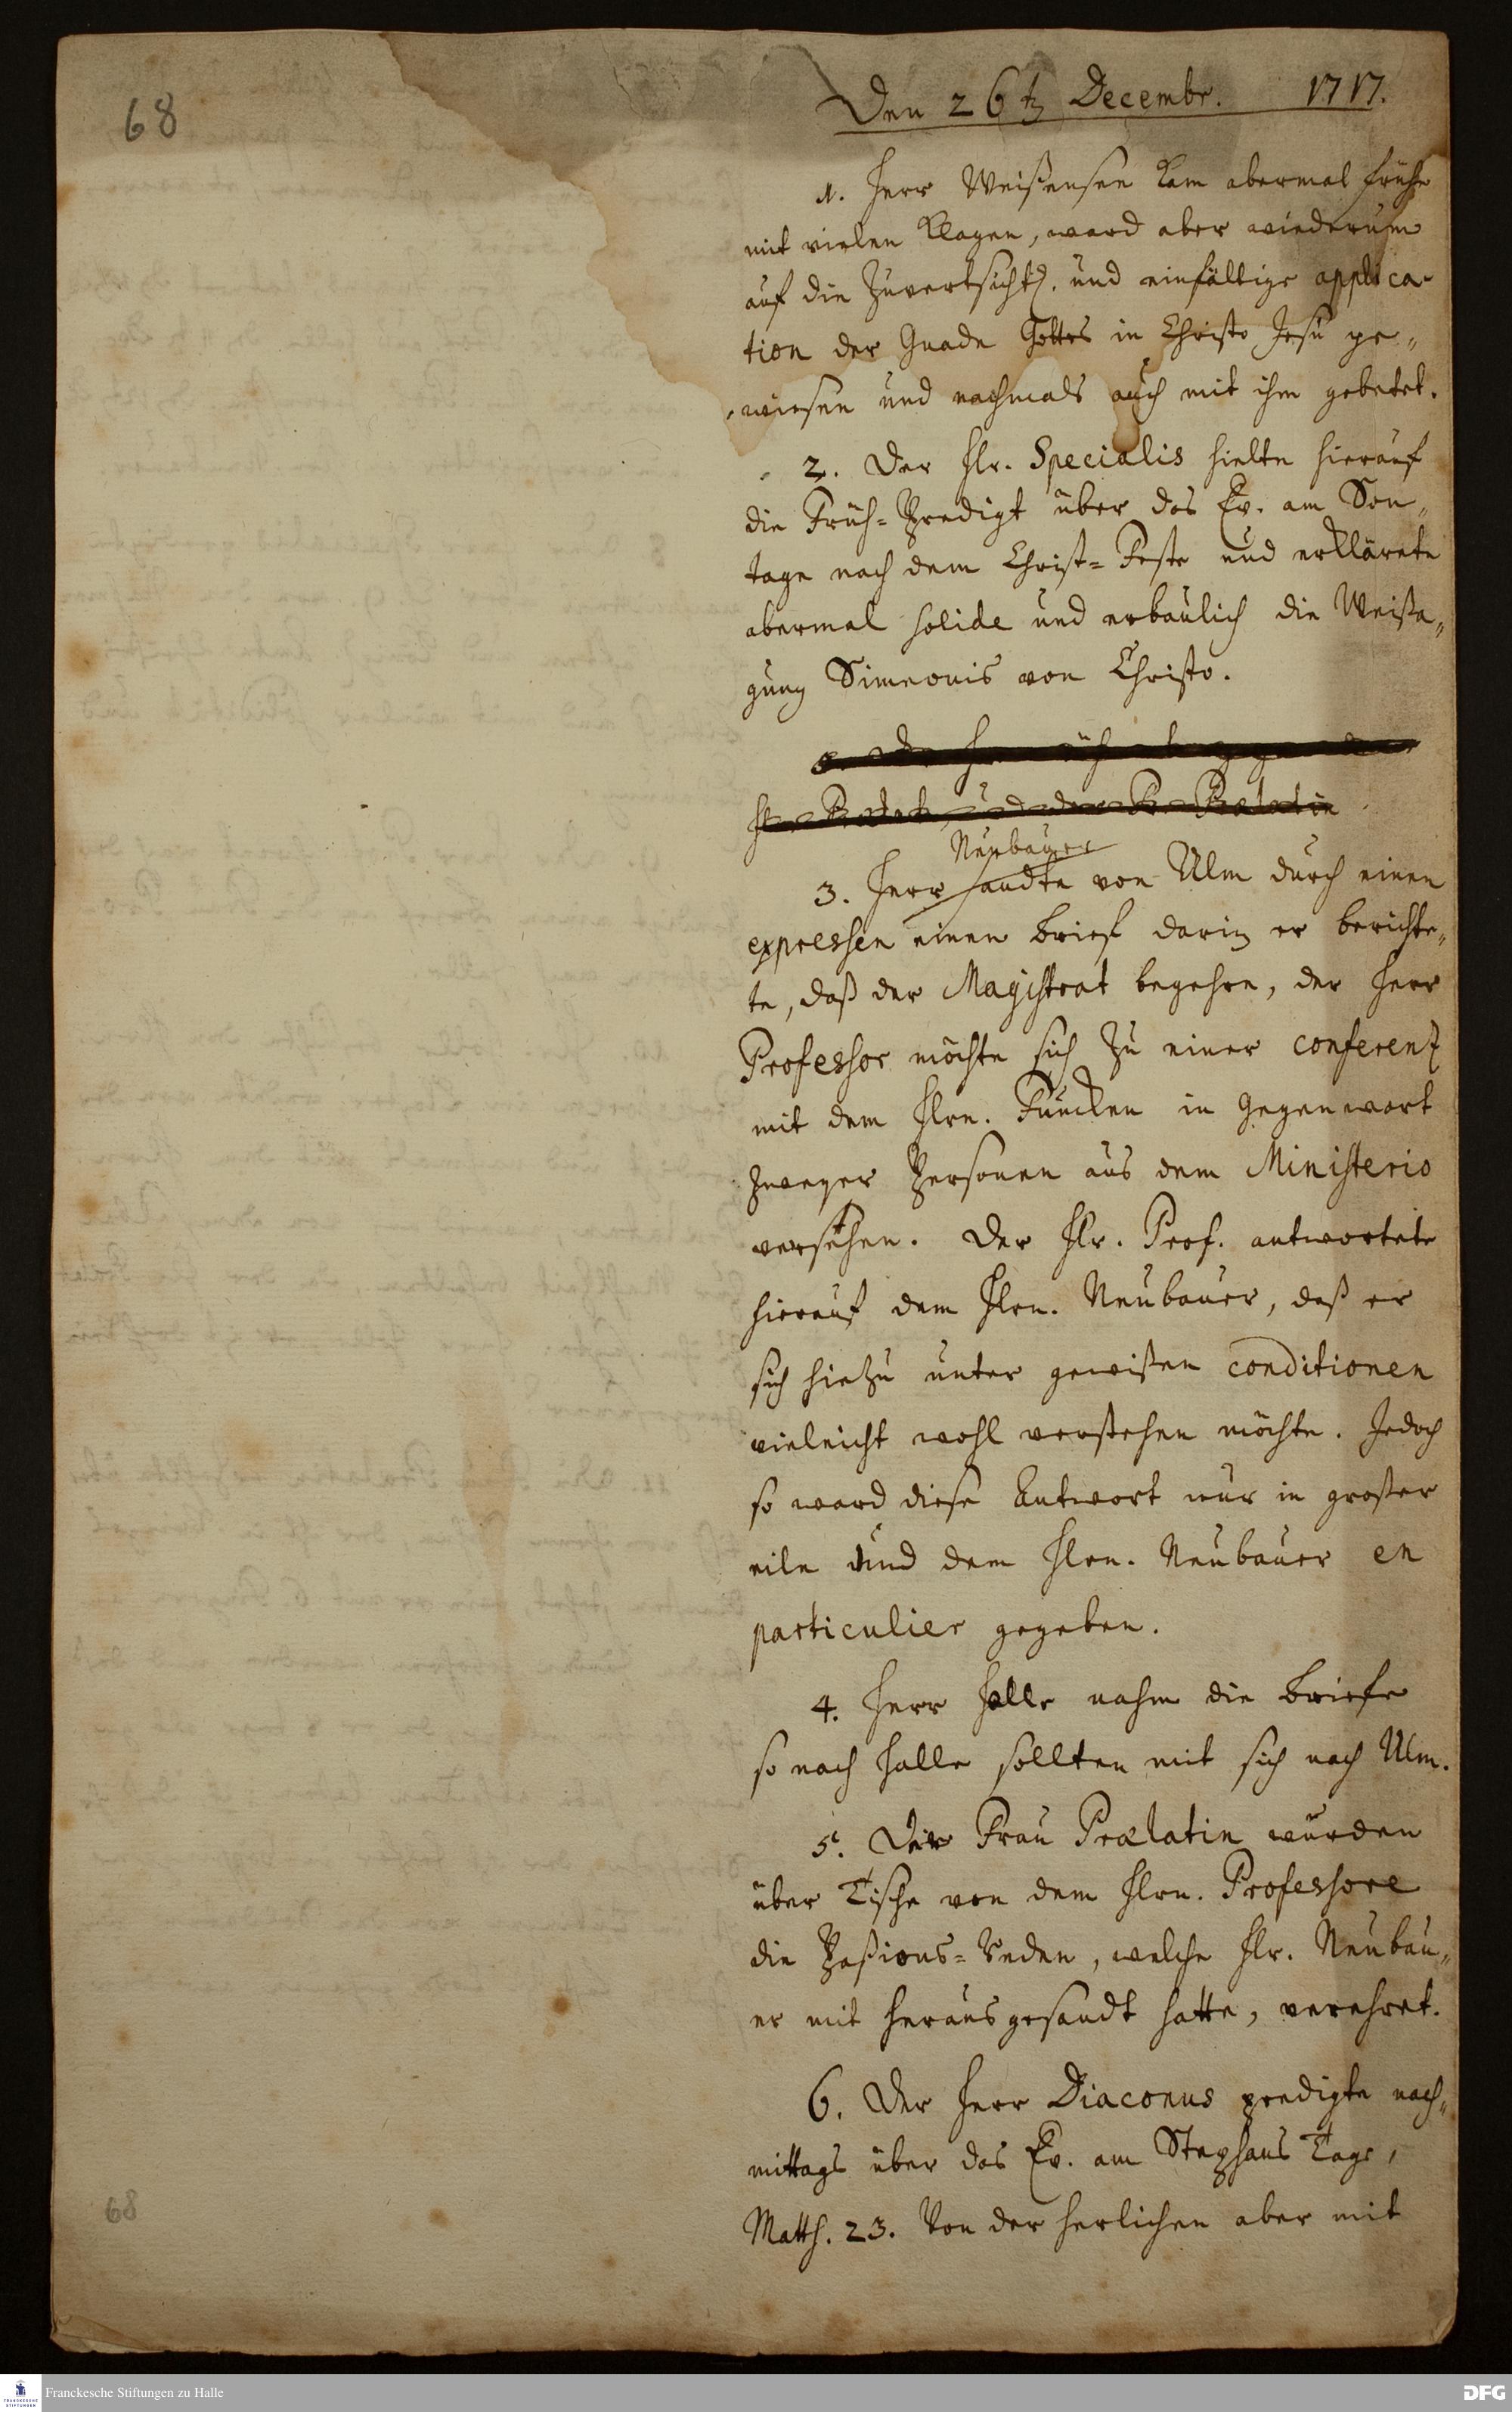 68
Den 26t. Decembr. 1717.
1. Herr Weißensee kam abermal frühe
mit vielen Klagen, ward aber wiederum
auf die Zuversichtl. und einfältige applica-
tion der Gnade Gottes in Christo Jesu ge-
wiesen und nachmals auch mit ihm gebetet.
2. Der Hr. Specialis hielte hierauf
die Früh-Predigt über das Ev. am Son-
tage nach dem Christ-Feste und erklärete
abermal solide und erbaulich die Weißa-
gung Simeonis von Christo.
Neubauer
3. Herr sandte von Ulm durch einen
expressen einen brief darin er berichte-
te, daß der Magistrat begehre, der Herr
Professor möchte sich zu einer conferentz
mit dem Hrn. Funcken in gegenwart
zweyer Personen aus dem Ministerio
verstehen. Der Hr. Prof. antwortete
hierauf dem Hrn. Neubauer, daß er
sich hiezu unter gewißen conditionen
vieleicht wohl verstehen möchte. Jedoch
so ward diese Antwort nur in großer
eile und dem Hrn. Neubauer en
particulier gegeben.
4. Herr Halle nahm die briefe
so nach Halle sollten mit sich nach Ulm.
5. Der Frau Praelatin wurden
über Tische von dem Hrn. Professore
die Paßions-Reden, welche Hr. Neubau-
er mit herausgesandt hatte, verehret.
6. Der Herr Diaconus predigte nach-
mittags über das Ev. am Stephans Tage,
Matth. 23. Von der herlichen aber mit
68
Franckesche Stiftungen zu Halle
DFG